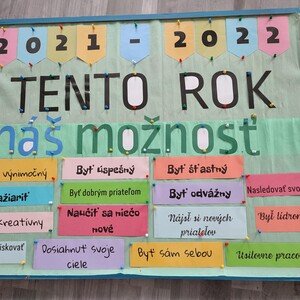 2021 - 2022
TENTO ROK
náš možnosť
výnimočný
Byť úspešný
Byť šťastný
žiariť
Byť dobrým priateľom
Byť odvážny
Nasledovať svo
kreatívny
Naučiť sa niečo
nové
Nájsť si nových
priateľov
Byť lídrom
riskovať
Dosiahnuť svoje
ciele
Byť sám sebou
Usilovne praco